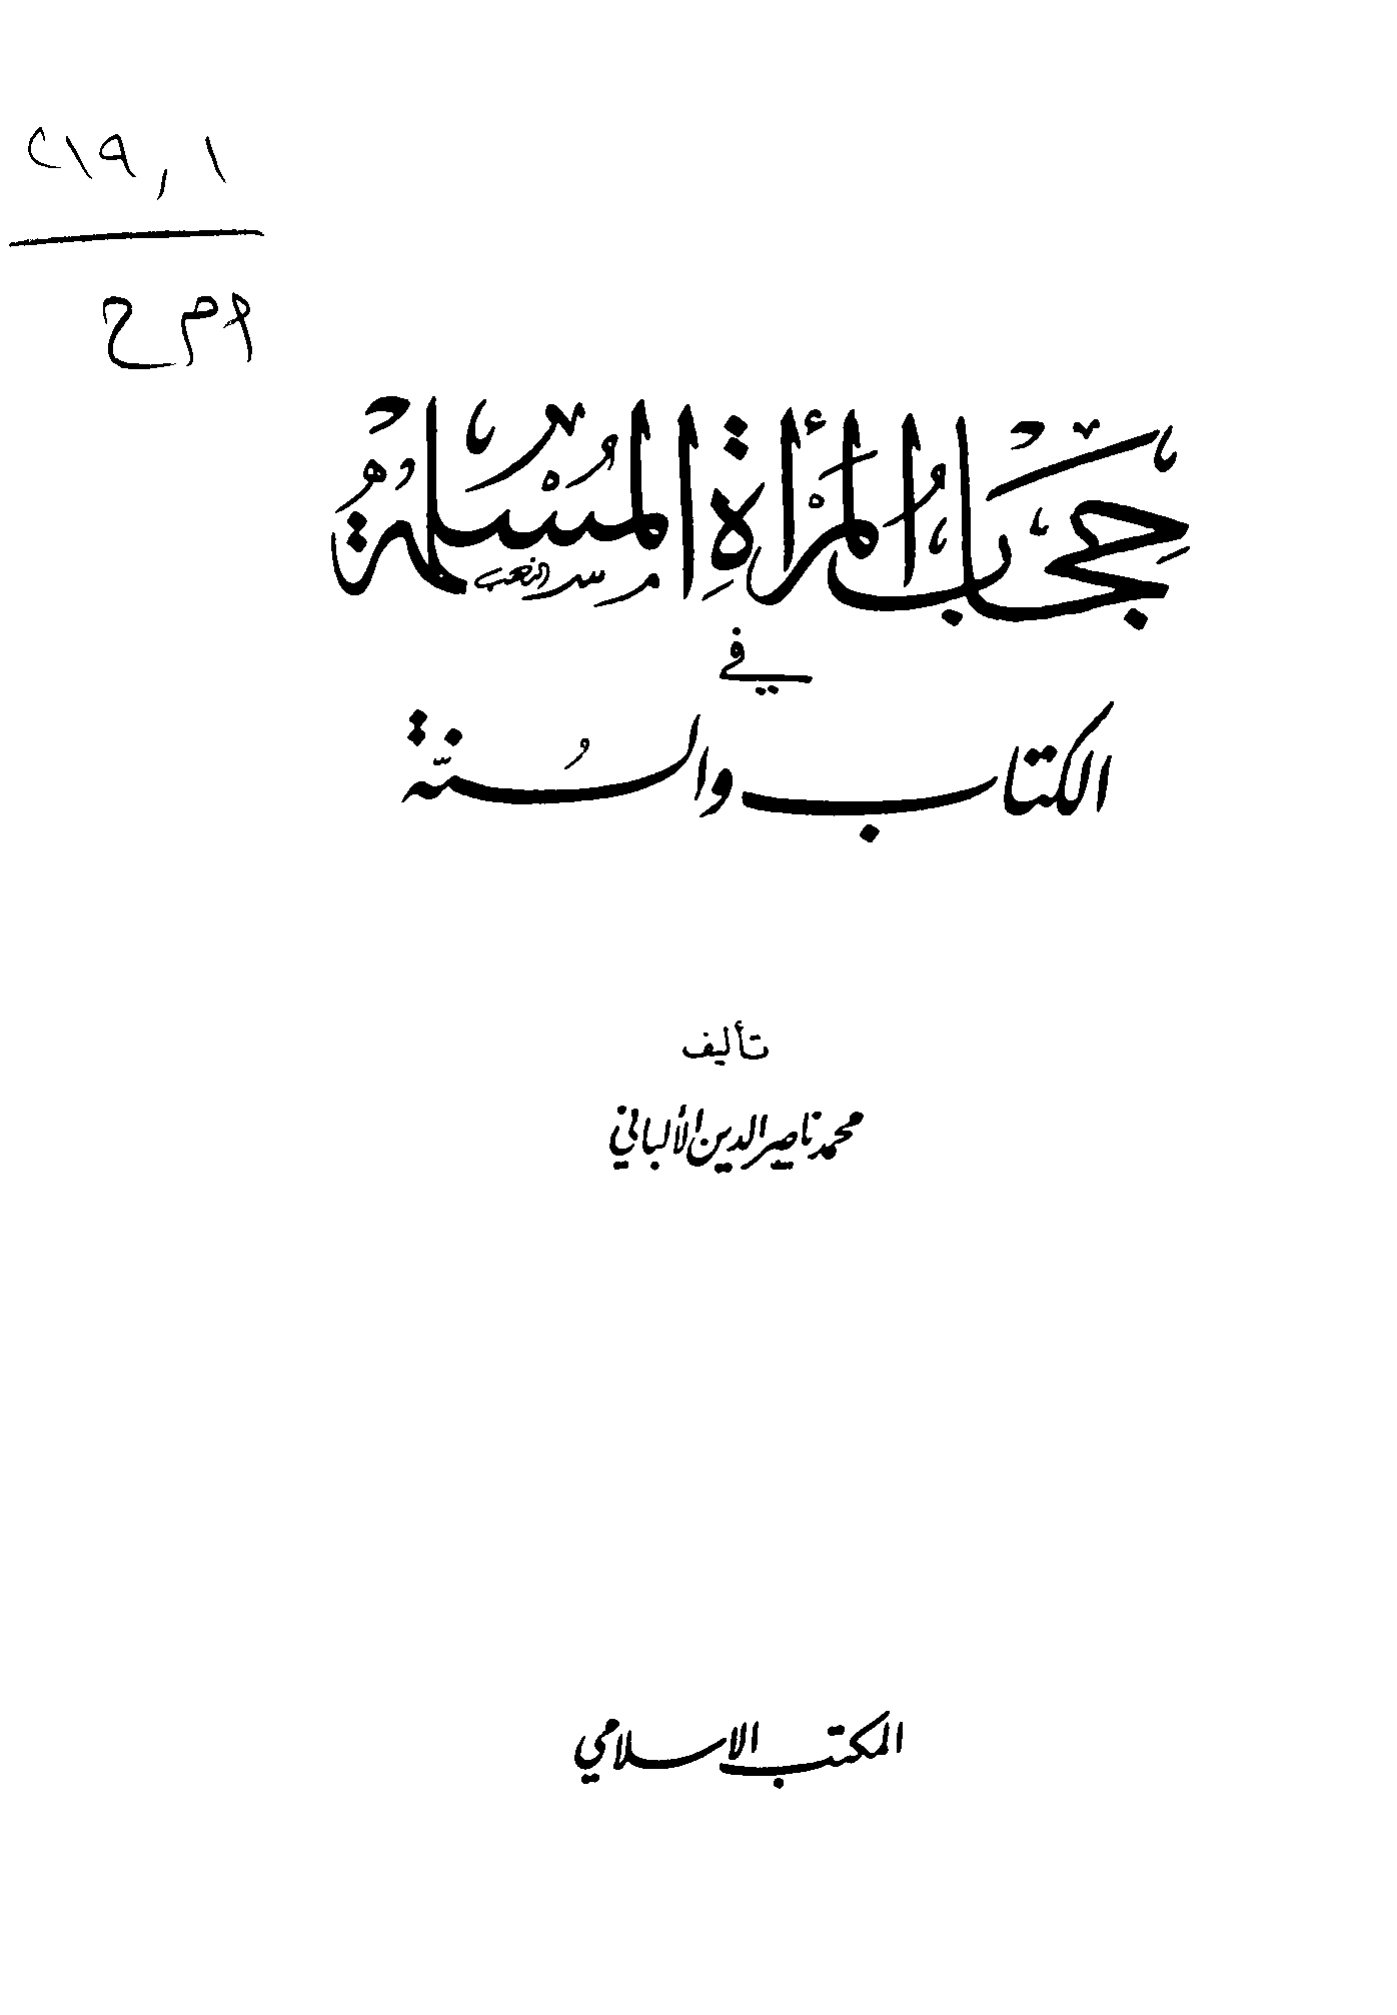 ٢١٩,١
ا م ح
حِجَابُ المَرْأَةِ المُسْلِمَةُ
في
الكتاب والسُنّة
تأليف
محمد ناصر الدين الألباني
المكتب الاسلامي